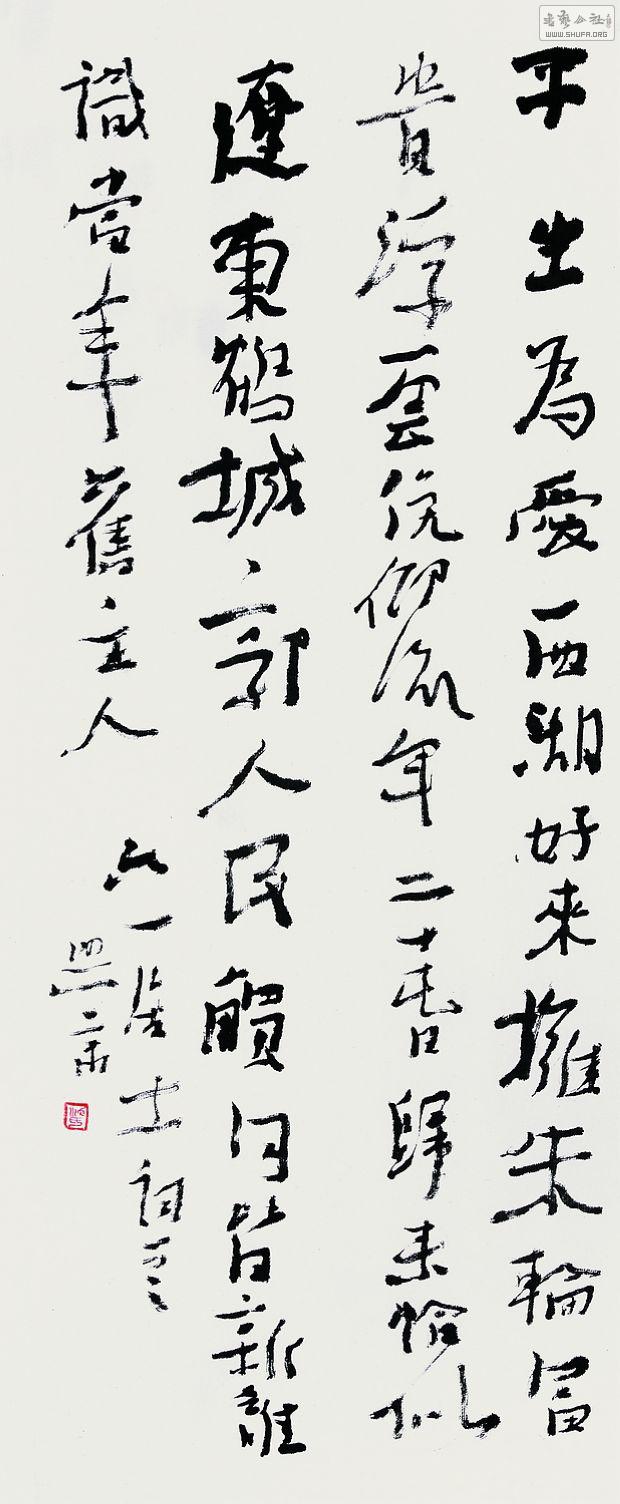 書藝公社
WWW.SHUFA.ORG
平生為愛西湖好來擁朱輪富
貴浮雲俛仰流年二十春歸來恰似
遼東鶴城郭人民觸目皆新誰
識當年舊主人
六一居士詞